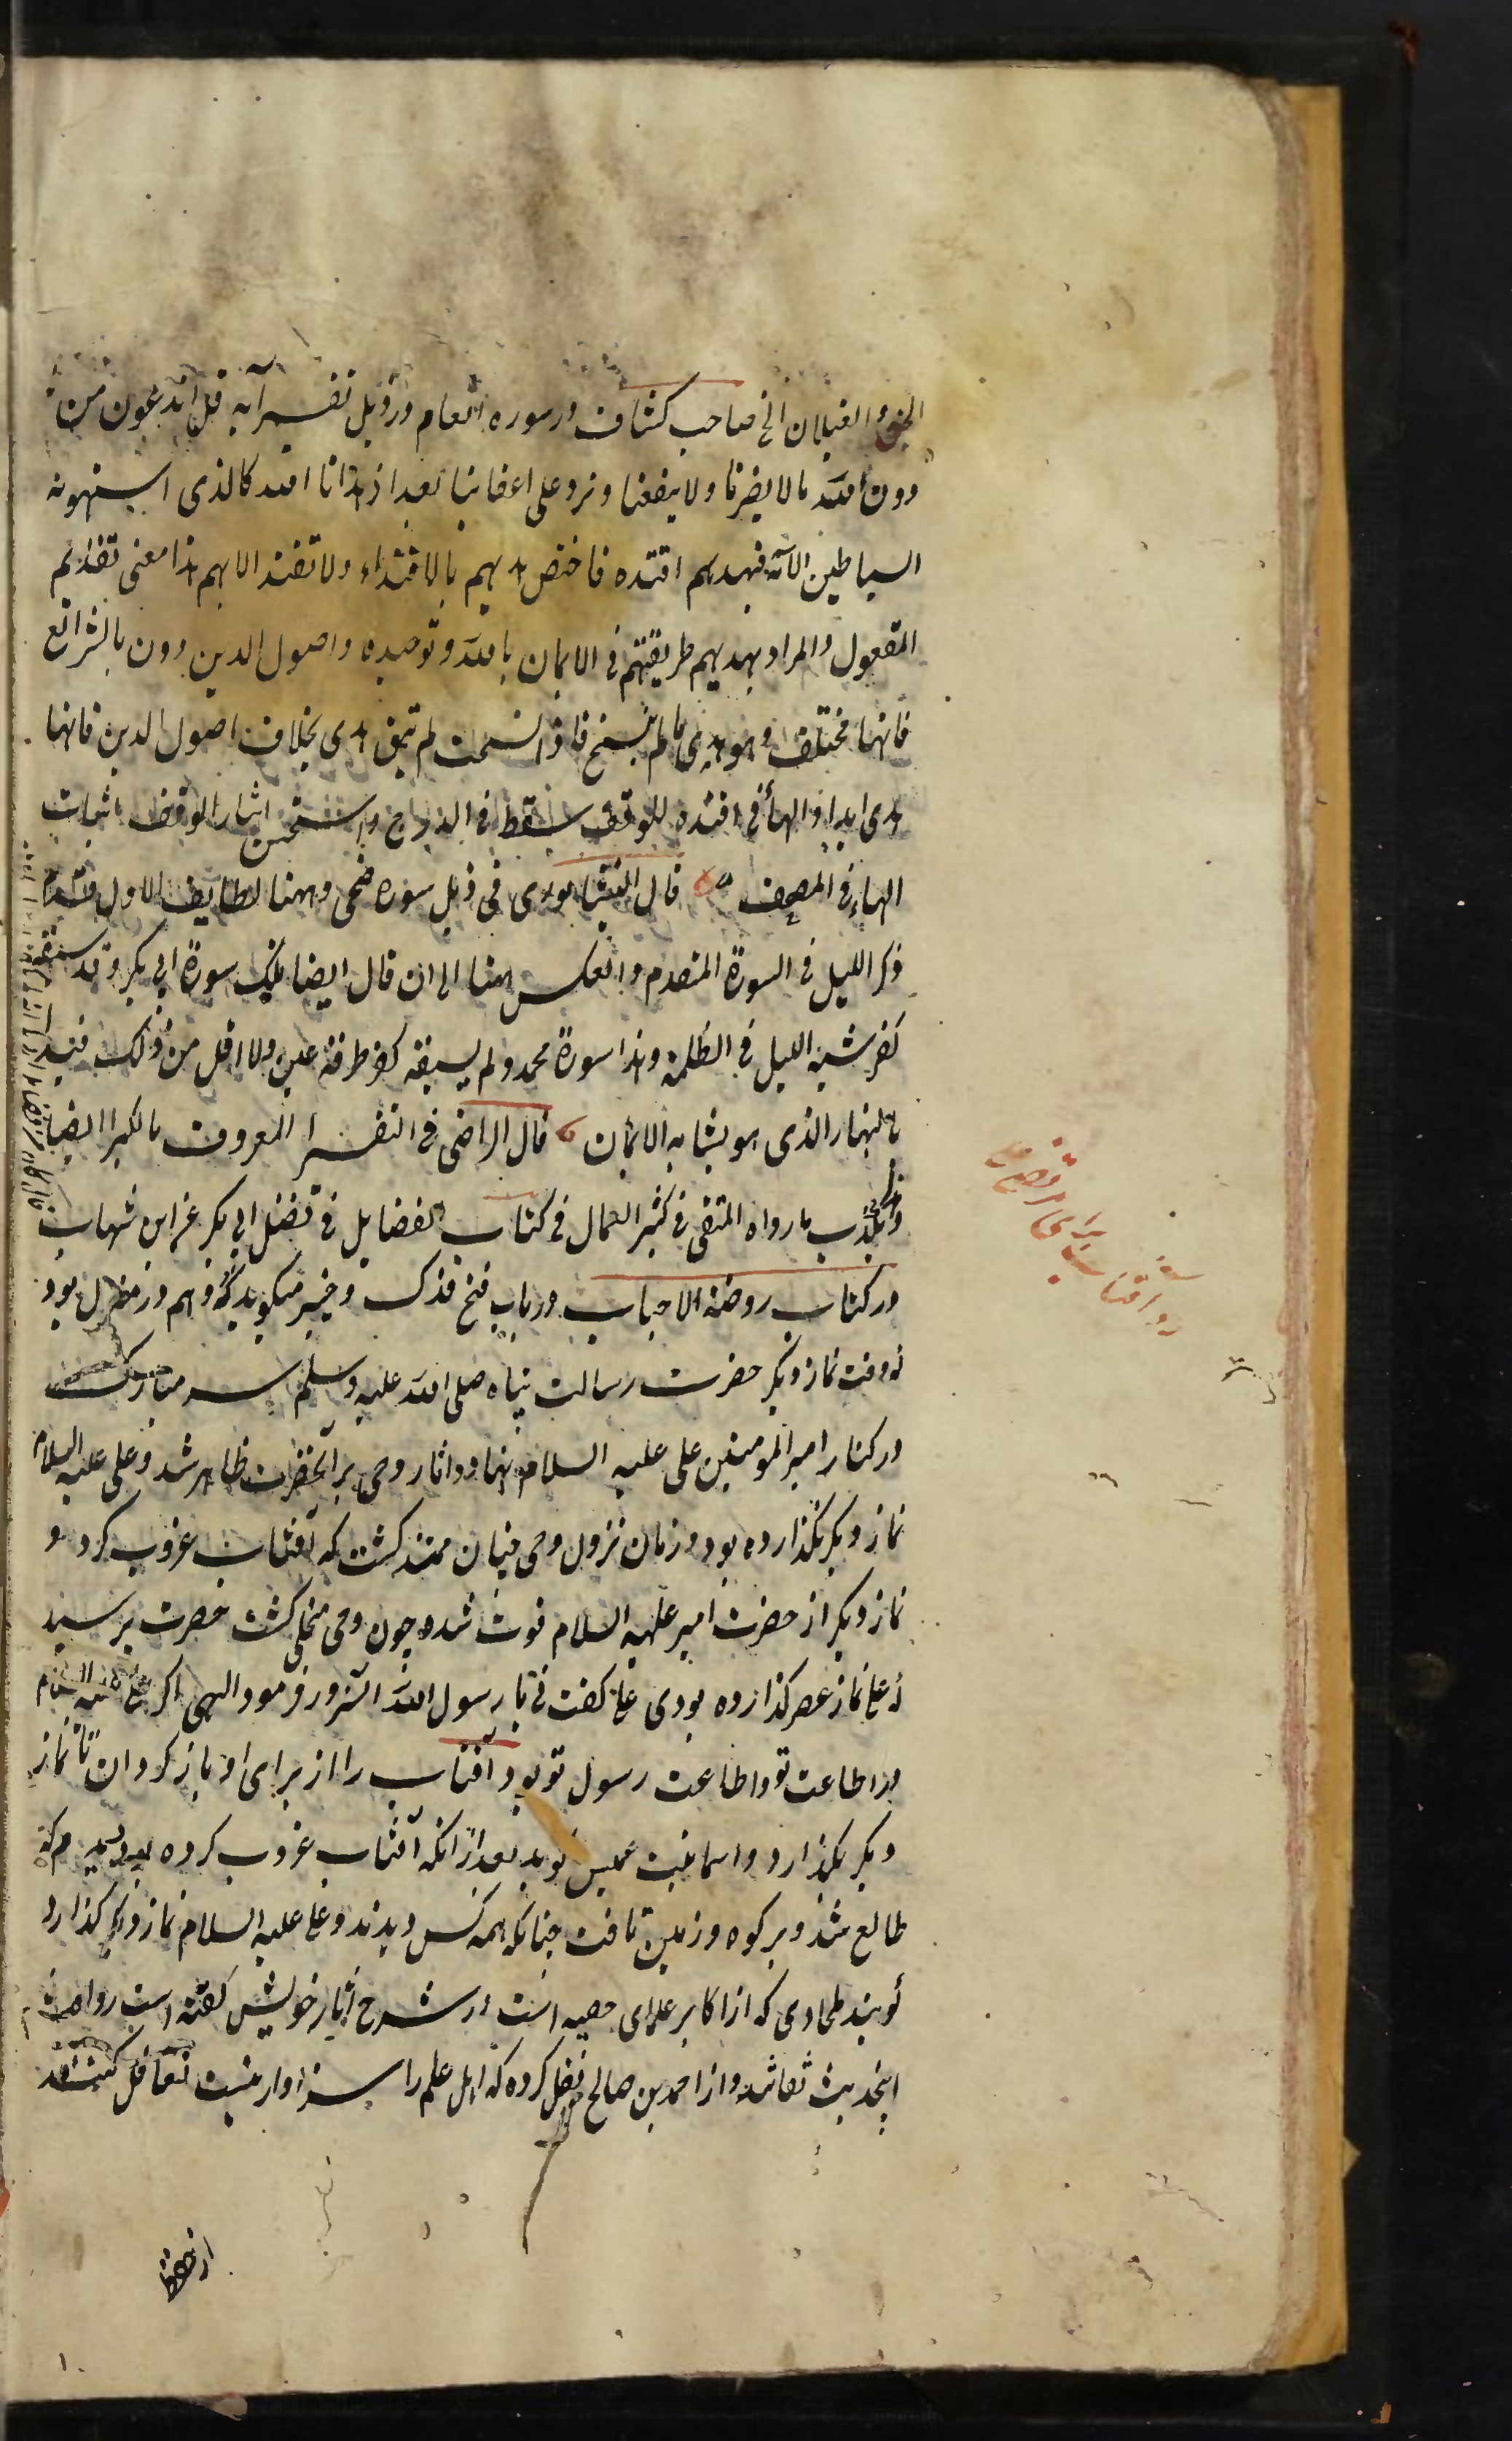 الجن والغیلان الخ صاحب کشاف در سوره انعام در ذیل تفسیر آیه قل اندعون من
دون الله ما لا یضرنا ولا ینفعنا ونرد علی اعقابنا بعد اذ هدانا الله کالذی استهوته
السیاطین الآیه فبهدیهم اقتده فاختص هدیهم بالاقتداء ولا تقتد الا بهم هذا معنی تقدیم
المفعول والمراد بهدیهم طریقتهم فی الایمان بالله وتوحیده واصول الدین دون بالشرائع
فانها مختلف وهو هدی ما لم ینسخ فاذا نسخت لم تبق هدی بخلاف اصول الدین فانها
هدی ابدا والهاء فی اقتده للوقف یسقط فی الدرج واستحسن ایثار الوقف باثبات
الهاء فی المصحف قال النیشابوری فی ذیل سوره ضحی وههنا لطایف الاول قدم
ذکر اللیل فی السورة المتقدم وانعکس ههنا الی ان قال ایضا تلک سورة ابی بکر وقد سبقه
کفر شبه اللیل فی الظلمه وهذا سورة محمد ولم یسبقه کفر طرفة عین ولا اقل من ذلک فبدا
بالنهار الذی هو یشابه الایمان قال الراضی فی التفسیر المعروف بالکبیر ایضا
ما رواه المتقی فی کنز العمال فی کتاب الفضایل فی تفضل ابی بکر عن ابن شهاب
در کتاب روضة الاحباب در باب فتح فدک وخیبر میکوید که وهم در منزل بود
که وقت نماز دیکر حضرت رسالت پناه صلی الله علیه وسلم سر مبارکش
در کنار امیر المومنین علی علیه السلام نهاد واثار وحی بر آنحضرت ظاهر شد وعلی علیه السلام
نماز دیکر نکذارده بود وزمان نزول وحی چنان ممتد کشت که آفتاب غروب کرد و
نماز دیکر از حضرت امیر علیه السلام فوت شد وچون وحی منجلی کشت حضرت پرسید
که علی نماز عصر کذارده بودی علی کفت نی یا رسول الله آنسرور فرمود الهی اکر علی علیه السلام
در اطاعت تو واطاعت رسول تو بود آفتاب را از برای او باز کردان تا نماز
دیکر بکذارد واسما بنت عمیس کوید بعد از آنکه آفتاب غروب کرده بود دیدم که
طالع شد وبر کوه وزمین تافت چنانکه همه کس دیدند وعلی علیه السلام نماز دیکر کذارد
کویند طحاوی که از اکابر علمای حنفیه است در شرح آثار خویش کفته است رواة
اینحدیث ثقاتند واز احمد بن صالح نقل کرده که اهل علم را سزاوار نیست تغافل کنند
از حفظ
رد آفتاب برای مرتضی علی